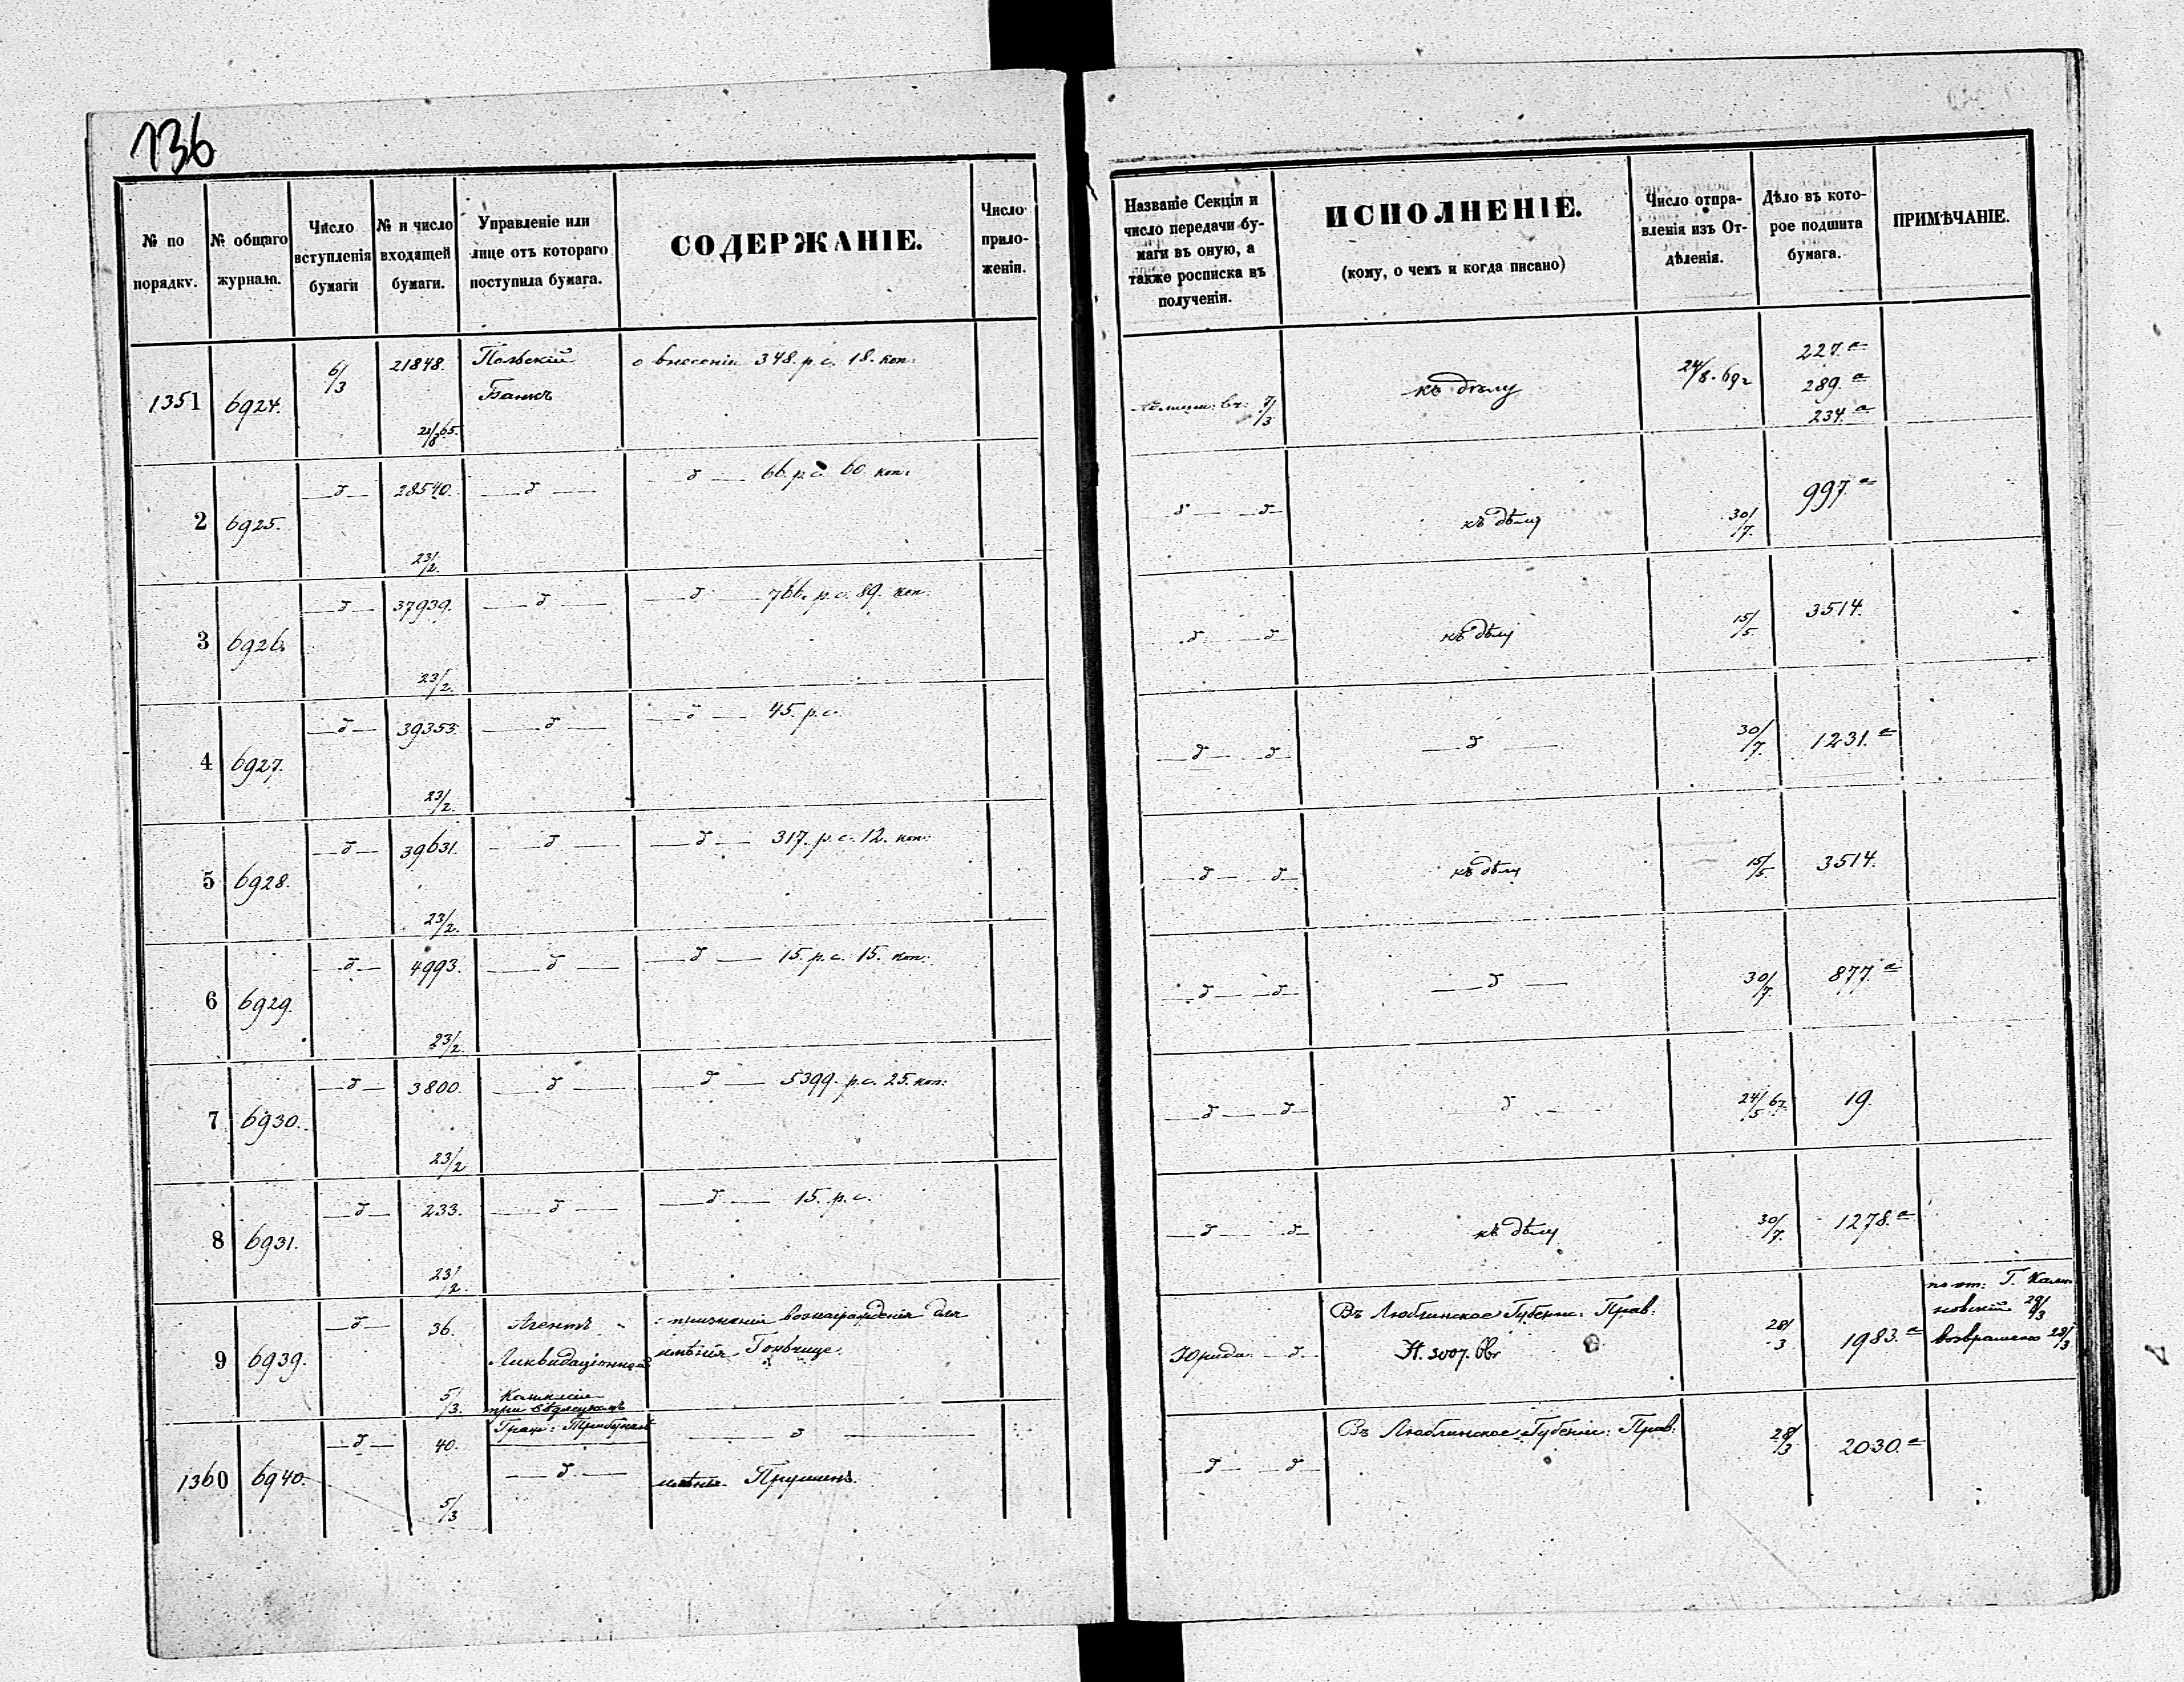 136
№ по порядку.
№ общаго журнала.
Число вступленія бумаги
№ и число входящей бумаги.
Управленіе или лице отъ котораго поступила бумага.
СОДЕРЖАНІЕ.
Число прило- женіи.
Названіе Секціи и число передачи бу- маги въ оную, а также росписка въ полученіи.
ИСПОЛНЕНІЕ.
(кому, о чемъ и когда писано)
Число отпра- вленія изъ От- дѣленія.
Дѣло въ кото- рое подшита бумага.
ПРИМѢЧАНІЕ.
1351 6924. 6/3 21848. Польскій о внесеніи 348. р. с. 18. коп:
Банкъ
21/8 65.
7/3 къ дѣлу 24/8. 69 г 227. а
289. а
234. а
2 6925. — д — 28540. — д — д — 66. р. с. 60. коп:
23/2.
д — д — къ дѣлу 30/7. 997. а
3 6926. — д — 37939. — д — — д — 766. р. с. 89. коп:
23/2.
д — д къ дѣлу 15/5. 3514.
4 6927. — д — 39353. — д — — д — 45. р. с.
23/2.
— д — д — — д — 30/7. 1231. а
5 6928. — д — 39631. — д — — д — 317. р. с. 12. коп:
23/2.
— д — д — къ дѣлу 15/5. 3514.
6 6929. — д — 4993. — д — — д — 15. р. с. 15. коп:
23/2.
— д — д — — д — 30/7. 877. а
7 6930. — д — 3800. — д — — д — 5399. р. с. 25. коп:
23/2
— д — д — д — 24/5 67. 19.
8 6931. — д — 233. — д — — д — 15. р. с.
23/2.
— д — д — къ дѣлу 30/7. 1278. а
9 6939. — д — 36. Агентъ вознагражденія для
Ликвидаціонной имѣнія
5/3. Коммисіи
при
Юрида. — д. Въ Люблинское Губерн: Прав:
N. 2007. 66 г
28/3 1983. а
возвращено 28/3
1360 6940. — д — 40. Граж: Трибуналѣ — д —
— д —
5/3
— д — д — Въ Люблинское Губерн: Прав: 28/3 2030. а